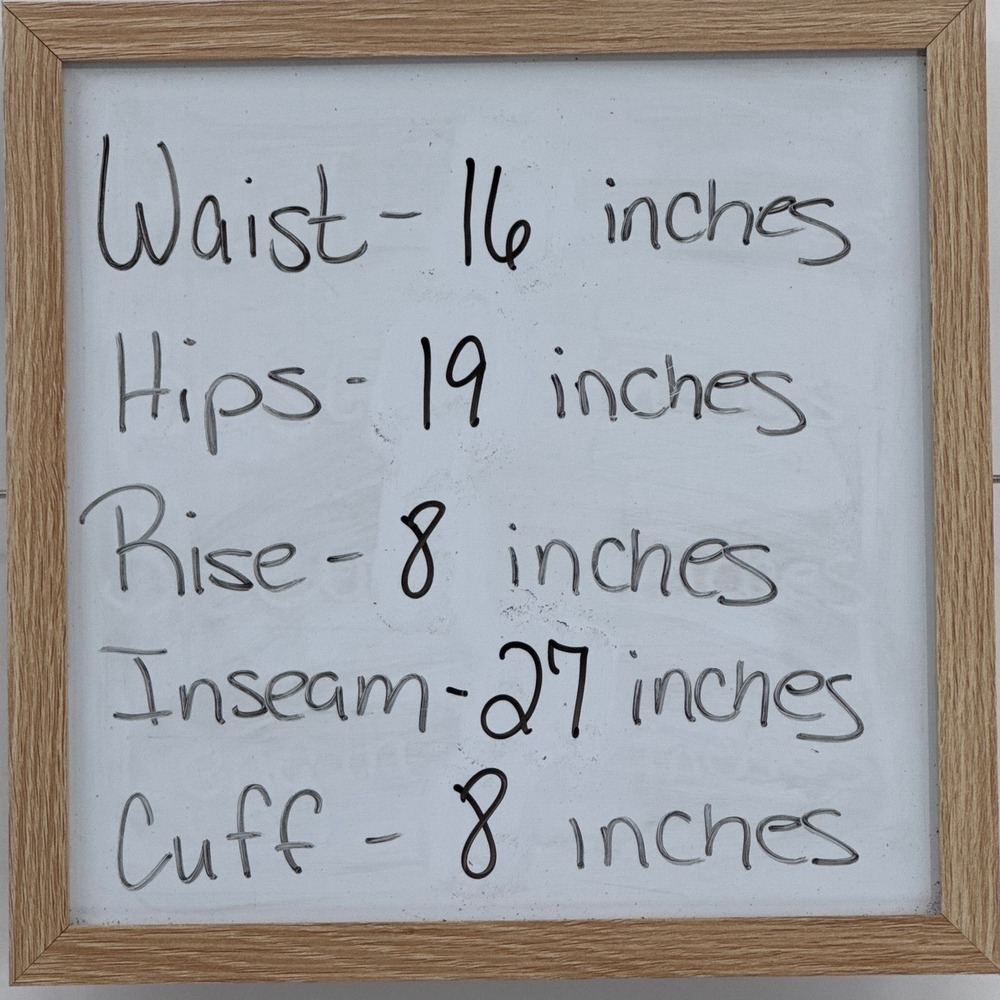 Waist - 16 inches
Hips - 19 inches
Rise - 8 inches
Inseam - 27 inches
Cuff - 8 inches